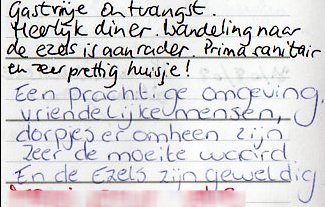 Gastvrije ontvangst.
Heerlijk diner. Wandeling naar
de ezels is aanrader. Prima sanitair
en zeer prettig huisje!
Een prachtige omgeving,
vriendelijke mensen,
dorpjes er omheen zijn
zeer de moeite waard
En de Ezels zijn geweldig